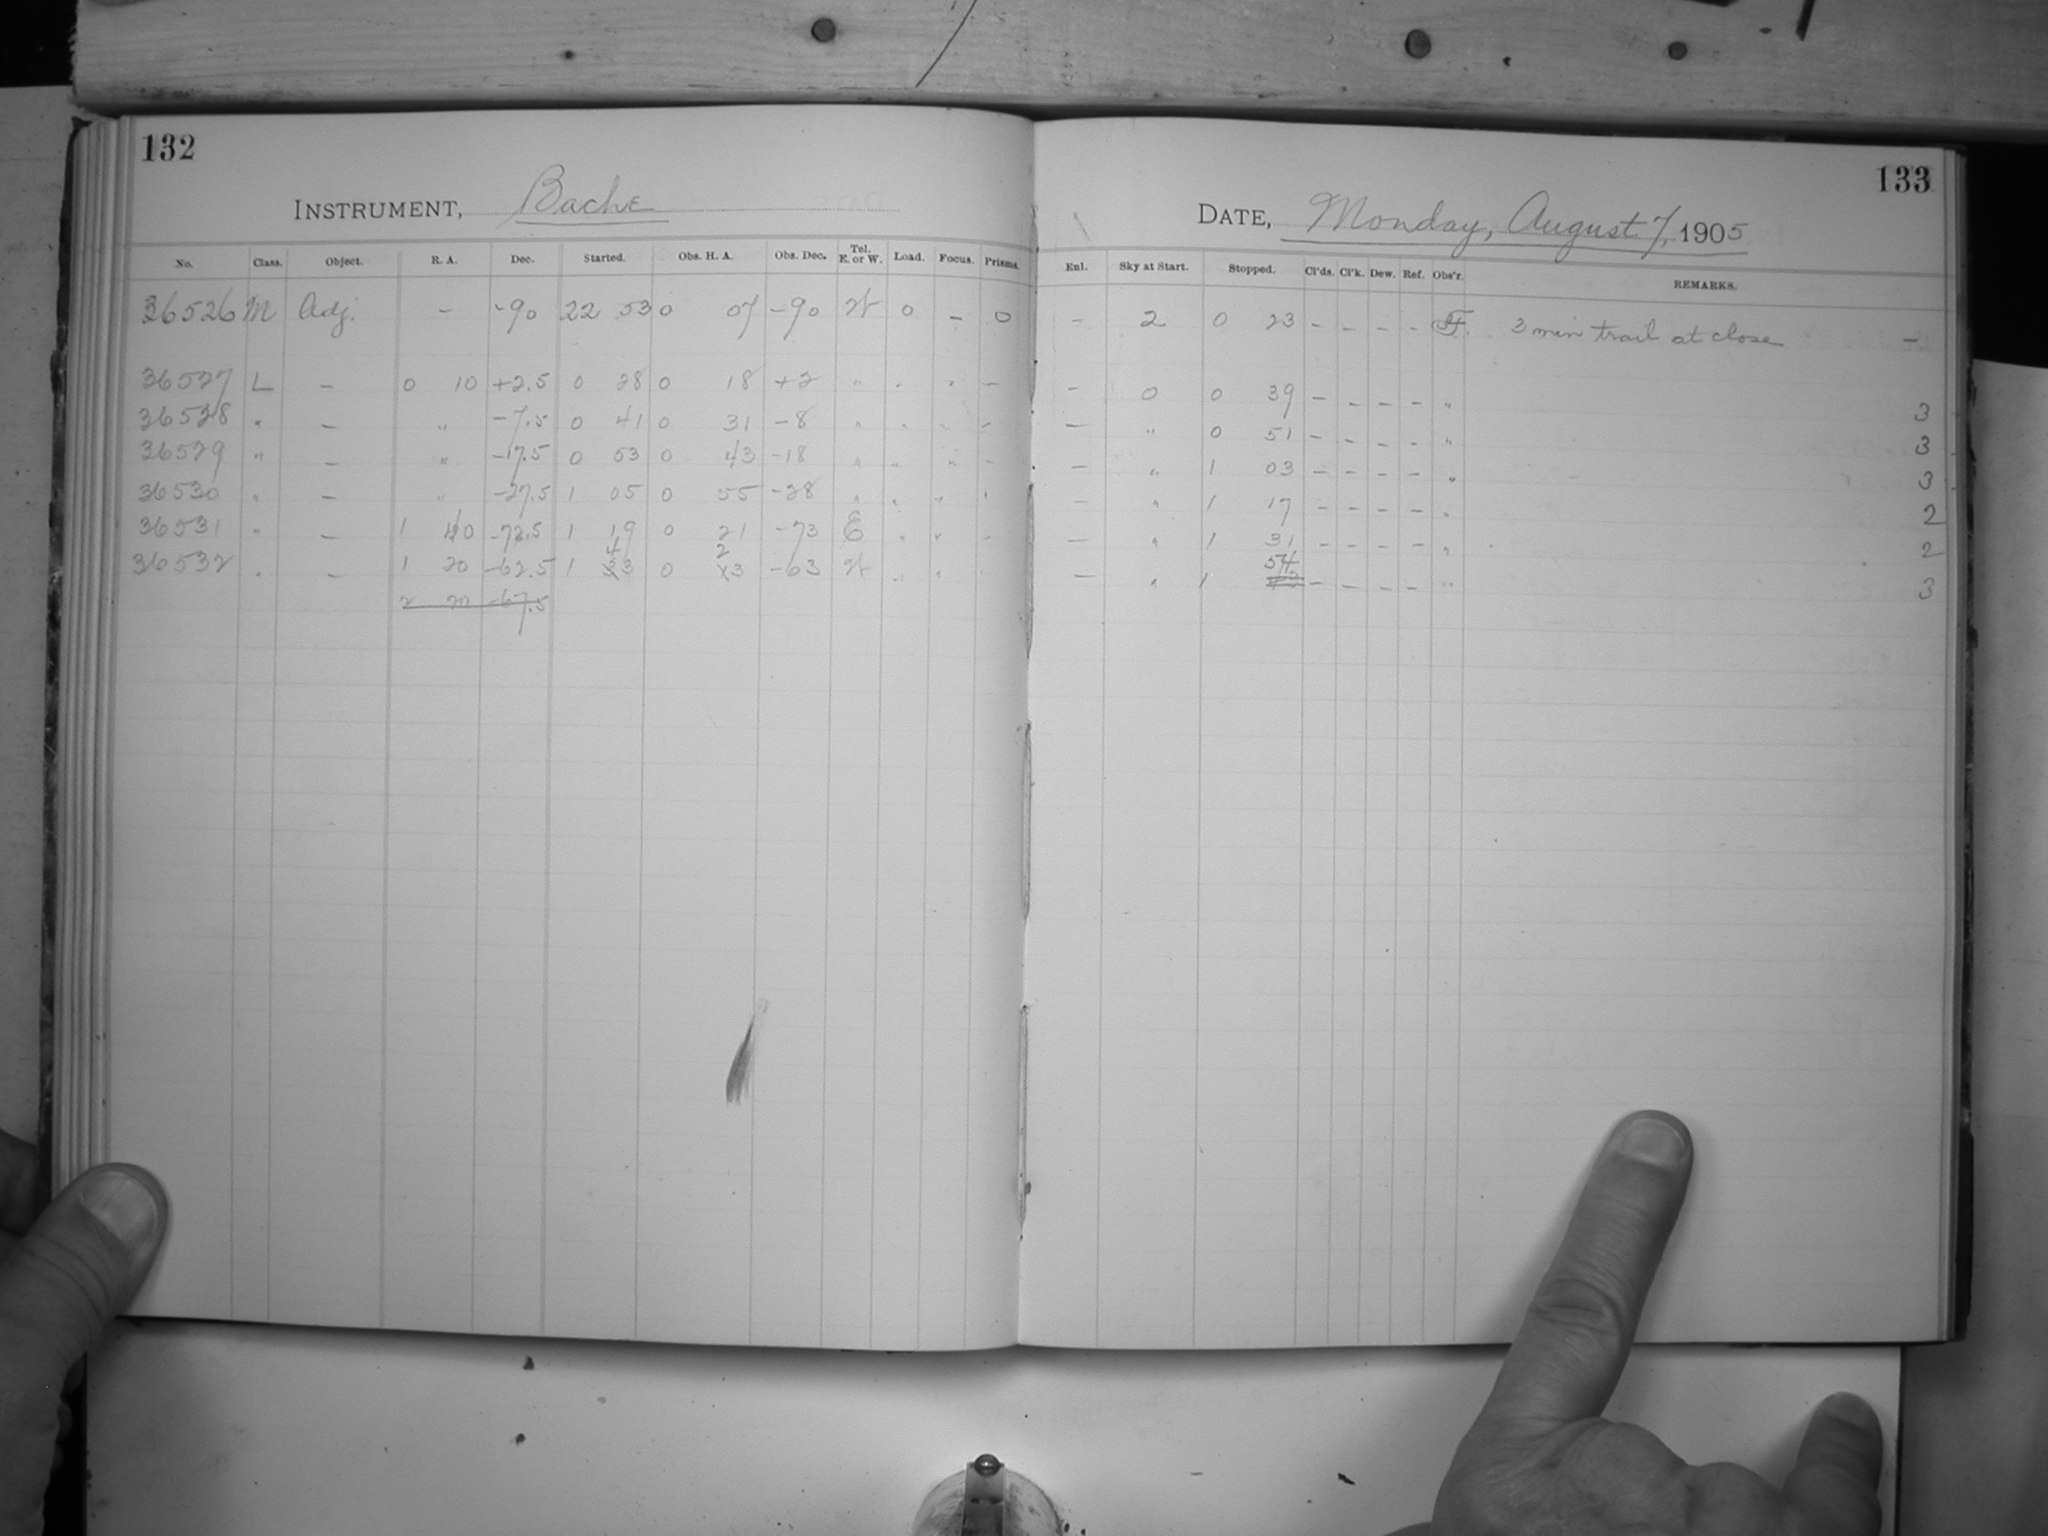 132
INSTRUMENT, Bache
No. Class. Object. R. A. Dec. Started. Obs. H. A. Obs. Dec. Tel. E. or W. Load. Focus. Prisms.
36526 M Adj. - -90 22 53 0 07 -90 W 0 - 0
36527 L - 0 10 +2.5 0 28 0 18 +2 " " " -
36528 " - " -7.5 0 41 0 31 -8 " " " -
36529 " - " -17.5 0 53 0 43 -18 " " " -
36530 " - " -27.5 1 05 0 55 -28 " " " "
36531 " - 1 40 -72.5 1 19 0 21 -73 E " " -
36532 " - 1 20 -62.5 1 43 0 23 -63 W " " "
2 20 -67.5
133
DATE, Monday, August 7, 1905
Enl. Sky at Start. Stopped. Cl'ds. Cl'k. Dew. Ref. Obs'r. REMARKS.
- 2 0 23 - - - - F. 3 min trail at close -
- 0 0 39 - - - - " 3
- " 0 51 - - - - " 3
- " 1 03 - - - - " 3
- " 1 17 - - - - " 2
- " 1 31 - - - - " 2
- " 1 54 - - - - " 3